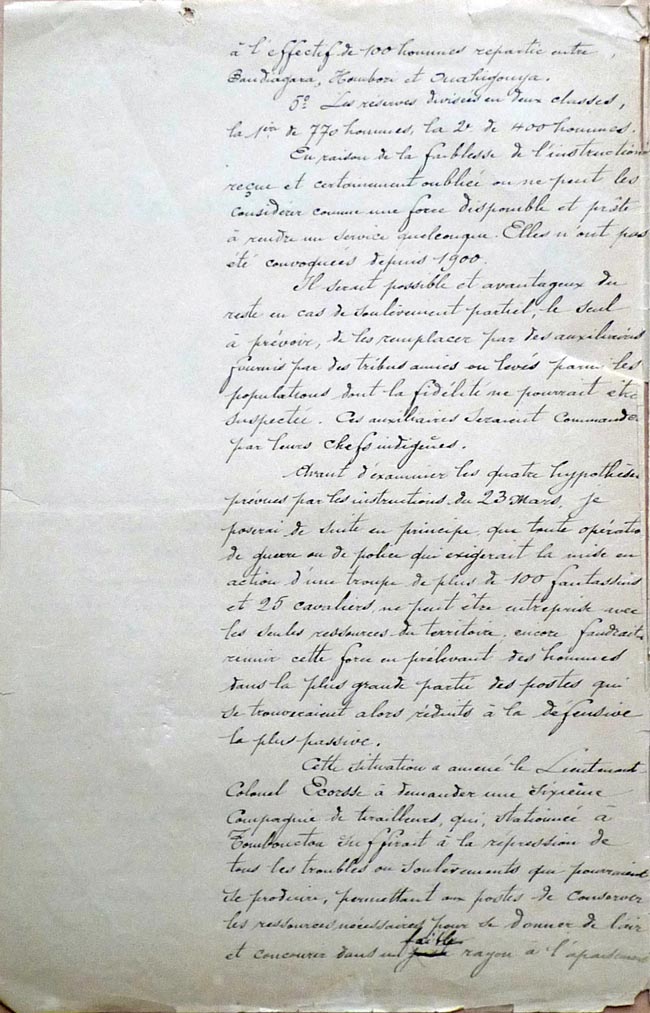 à l'effectif de 100 hommes repartie entre
Bandiagara, Hombori et Ouahigouya.
5º Les réserves divisées en deux classes,
la 1ère de 770 hommes, la 2e de 400 hommes.
En raison de la faiblesse de l'instruction
reçue et certainement oubliée on ne peut les
considérer comme une force disponible et prête
à rendre un service quelconque. Elles n'ont pas
été convoquées depuis 1900.
Il serait possible et avantageux du
reste en cas de soulèvement partiel, le seul
à prévoir, de les remplacer par des auxiliaires
fournis par des tribus amies ou levés parmi les
populations dont la fidélité ne pourrait être
suspectée. Ces auxiliaires seraient commandés
par leurs chefs indigênes.
Avant d'examiner les quatre hypothèses
prévues par les instructions du 23 Mars, je
poserai de suite en principe, que toute opératio
de guerre ou de police qui exigerait la mise en
action d'une troupe de plus de 100 fantassins
et 25 cavaliers, ne peut être entreprise avec
les seules ressources du territoire, encore faudrait
réunir cette force en prélevant des hommes
dans la plus grande partie des postes qui
se trouveraient alors réduits à la défensive
la plus passive.
Cette situation a amené le Lieutenant
Colonel Ecorsse à demander une sixième
Compagnie de tirailleurs, qui, stationnée à
Tombouctou suffirait à la répression de
tous les troubles ou soulèvements qui pourraient
se produire, permettant aux postes de conserver
les ressources nécessaires pour se donner de l'air
faible
et concourir dans un rayon à l'apaisement